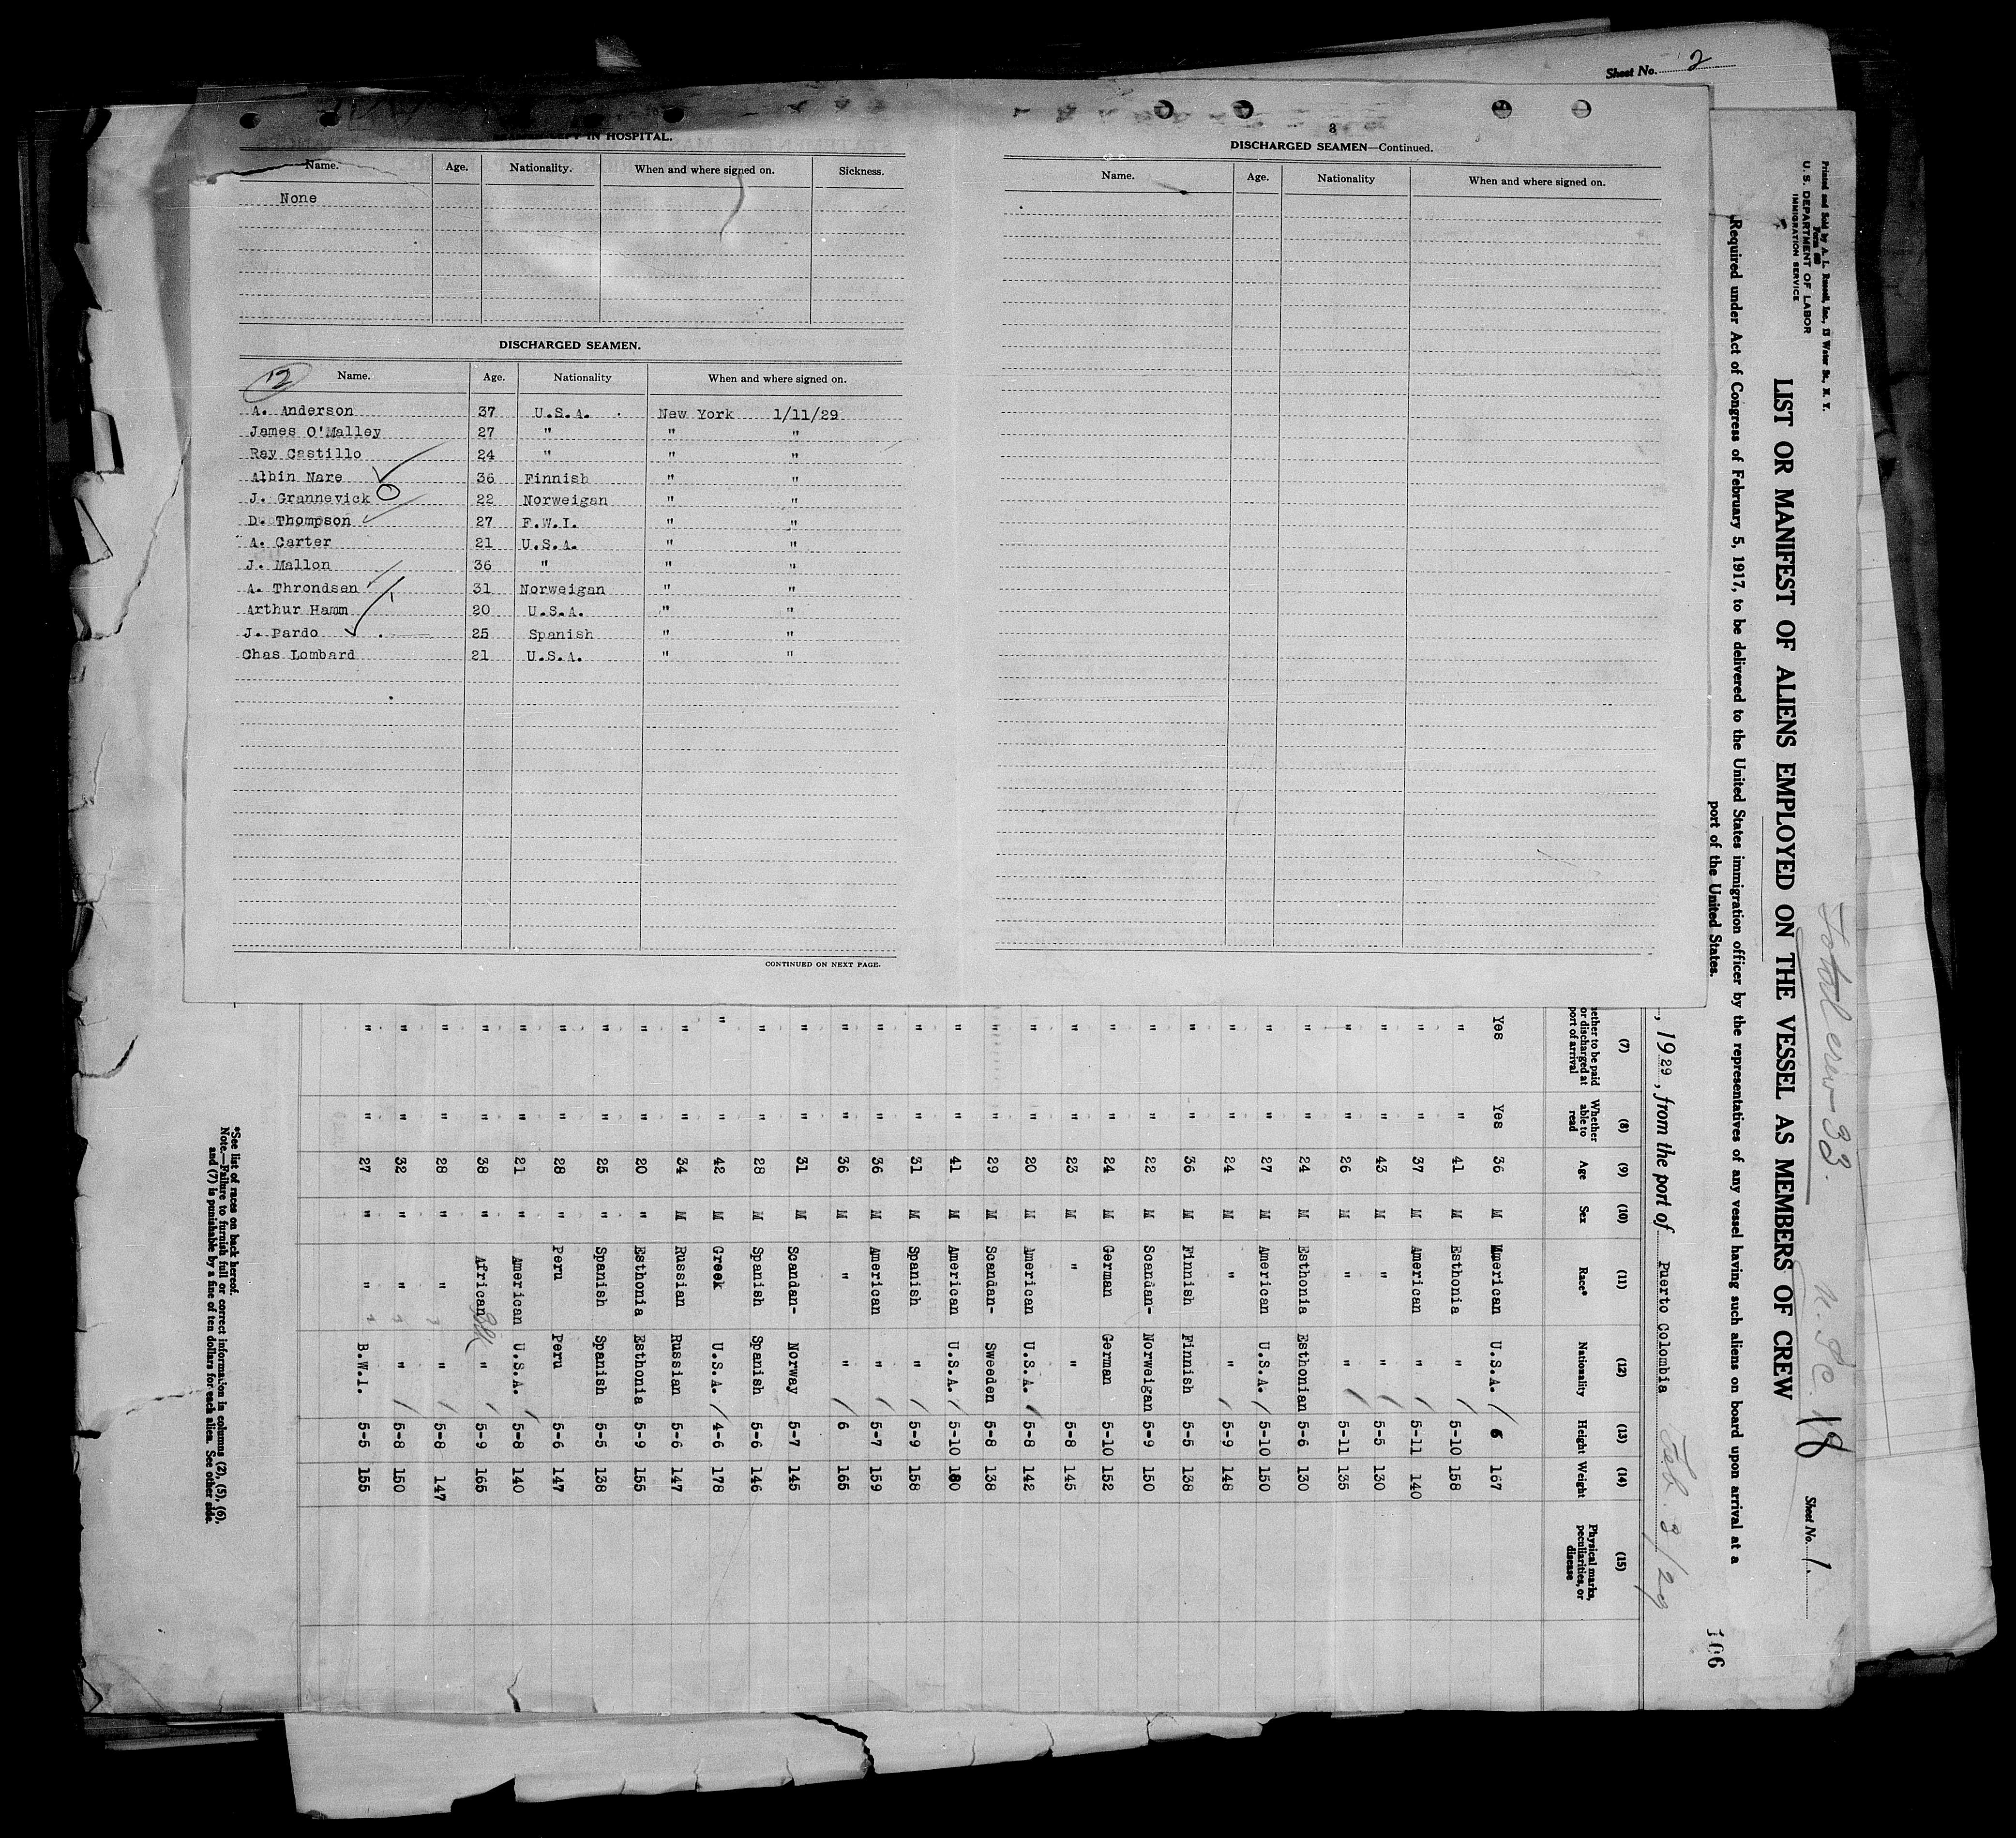 Sheet No. 2
LEFT IN HOSPITAL.
Name. Age. Nationality. When and where signed on. Sickness.
None
DISCHARGED SEAMEN.
12
Name. Age. Nationality When and where signed on.
A. Anderson 37 U.S.A. New York 1/11/29
James O'Malley 27 " " "
Ray Castillo 24 " " "
Albin Nare 36 Finnish " "
J. Grannevick 22 Norweigan " "
D. Thompson 27 F.W.I. " "
A. Carter 21 U.S.A. " "
J. Mallon 36 " " "
A. Throndsen 31 Norweigan " "
Arthur Hamm 20 U.S.A. " "
J. Pardo 25 Spanish " "
Chas Lombard 21 U.S.A. " "
CONTINUED ON NEXT PAGE.
8
DISCHARGED SEAMEN—Continued.
Name. Age. Nationality When and where signed on.
Printed and Sold by A. L. Russell, Inc., 13 Water St., N. Y.
U. S. DEPARTMENT OF LABOR
IMMIGRATION SERVICE
Total crew 33.
18
Sheet No. 1.
LIST OR MANIFEST OF ALIENS EMPLOYED ON THE VESSEL AS MEMBERS OF CREW
Required under Act of Congress of February 5, 1917, to be delivered to the United States immigration officer by the representatives of any vessel having such aliens on board upon arrival at a
port of the United States.
106
, 1929, from the port of Puerto Colombia Feb. 3/29
(7) (8) (9) (10) (11) (12) (13) (14) (15)
ether to be paid or discharged at port of arrival Whether able to read Age Sex Race* Nationality Height Weight Physical marks, peculiarities, or disease
Yes Yes 36 M American U.S.A. 6 167
" " 41 M Esthonia " 5-10 158
" " 37 M American " 5-11 140
" " 43 M " " 5-5 130
" " 26 M " " 5-11 135
" " 24 M Esthonia Esthonian 5-6 130
" " 27 M American U.S.A. 5-10 150
" " 24 M " " 5-9 148
" " 36 M Finnish Finnish 5-5 138
" " 22 M Scandan- Norweigan 5-9 150
" " 24 M German German 5-10 152
" " 23 M " " 5-8 145
" " 20 M American U.S.A. 5-8 142
" " 29 M Scandan- Sweden 5-8 138
" " 41 M American U.S.A. 5-10 180
" " 31 M Spanish " 5-9 158
" " 36 M American " 5-7 159
" " 36 M " " 6 165
" " 31 M Scandan- Norway 5-7 145
" " 28 M Spanish Spanish 5-6 146
" " 42 M Greek U.S.A. 4-6 178
" " 34 M Russian Russian 5-6 147
" " 20 " Esthonia Esthonia 5-9 155
" " 25 " Spanish Spanish 5-5 138
" " 28 " Peru Peru 5-6 147
" " 21 " American U.S.A. 5-8 140
" " 38 " African Blk " 5-9 165
" " 28 " " " 5-8 147
" " 32 " " " 5-8 150
" " 27 " " B.W.I. 5-5 155
*See list of races on back hereof.
Note.—Failure to furnish full or correct information in columns (2), (5), (6),
and (7) is punishable by a fine of ten dollars for each alien. See other side.